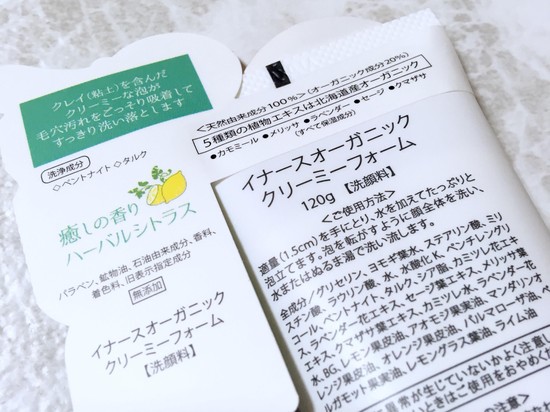 クレイ(粘土)を含んだ
クリーミーな泡が
毛穴汚れをごっそり吸着して
すっきり洗い落とします
洗浄成分
◇ベントナイト ◇タルク
癒しの香り
ハーバルシトラス
パラベン、鉱物油、石油由来成分、香料、
着色料、旧表示指定成分
無添加
イナースオーガニック
クリーミーフォーム
【洗顔料】
<天然由来成分100%>(オーガニック成分20%)
5種類の植物エキスは北海道産オーガニック
●カモミール ●メリッサ ●ラベンダー ●セージ ●クマザサ
(すべて保湿成分)
イナースオーガニック
クリーミーフォーム
120g【洗顔料】
<ご使用方法>
適量(1.5cm)を手にとり、水を加えてたっぷりと
泡立てます。泡を転がすように顔全体を洗い、
水またはぬるま湯で洗い流します。
全成分/グリセリン、ヨモギ葉水、ステアリン酸、ミリ
スチン酸、ラウリン酸、水、水酸化K、ペンチレングリ
コール、ベントナイト、タルク、シア脂、カミツレ花エキ
ス、ラベンダー花エキス、セージ葉エキス、メリッサ葉
エキス、クマザサ葉エキス、カミツレ水、ラベンダー花
水、BG、レモン果皮油、アオモジ果実油、マンダリンオ
レンジ果皮油、オレンジ果皮油、パルマローザ油、ベ
ルガモット果実油、レモングラス葉油、ライム油
異常が生じていないかよく注意し